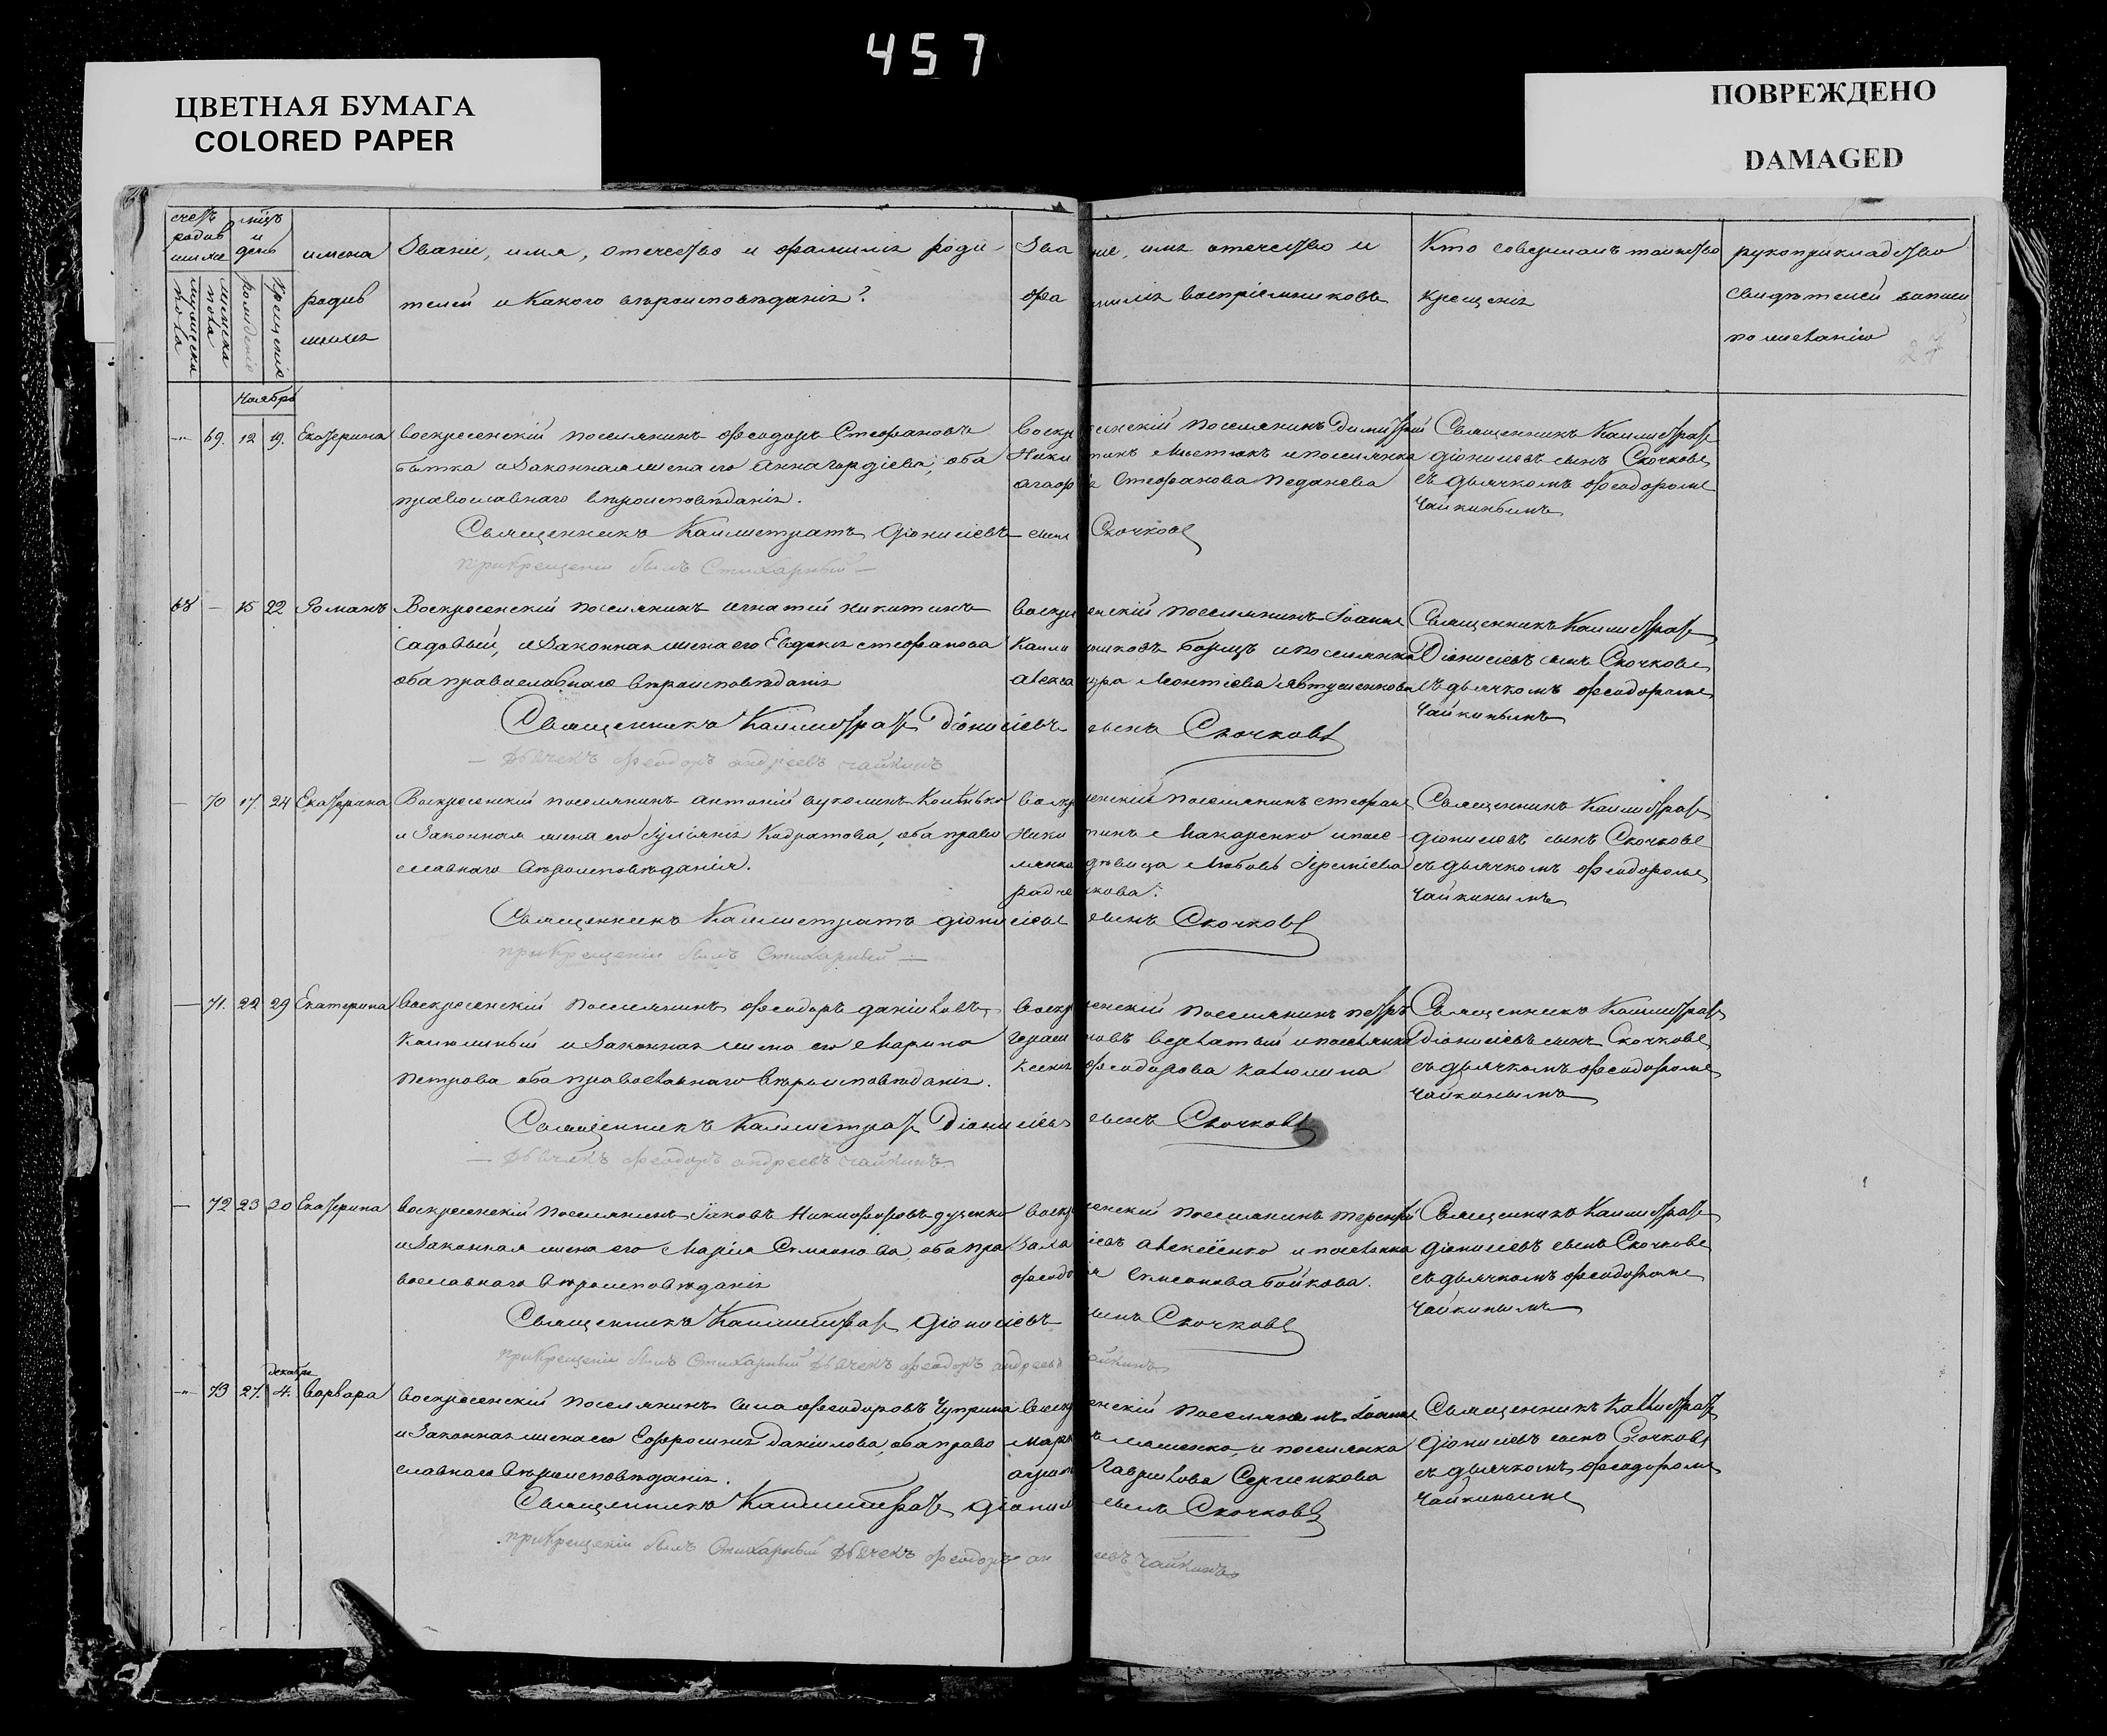 457
ЦВЕТНАЯ БУМАГА
COLORED PAPER
ПОВРЕЖДЕНО
DAMAGED
счетъ родившихся
мужеска пола
женска пола
мѣсяцъ и день
рожденія
крещенія
имена родившихся
Званіе, имя, отечество и фамилія родителей и какого вѣроисповѣданія?
Званіе, имя отечество и фамилія воспріемниковъ
Кто совершалъ таинство крещенія
рукоприкладство свидѣтелей записи по желанію
27
Ноябрь
69. 12 19. Екатерина
воскресенскій поселянинъ Феодоръ Стефановъ
и законная жена его Анна Гордіева, оба
православнаго вѣроисповѣданія.
воскресенскій поселянинъ Димитрій
Никитинъ и поселянка
Стефанова
Священникъ Каллистратъ
Діонисіевъ сынъ Скочковъ
съ дьячкомъ Феодоромъ
Чайкинымъ
Священникъ Каллистратъ Діонисіевъ сынъ Скочковъ
при крещеніи былъ Стихарный —
68 — 15 22 Романъ
Воскресенскій поселянинъ Игнатій Никитинъ
Садовый, и законная жена его Евдокія Стефанова
оба православнаго вѣроисповѣданія
воскресенскій поселянинъ Іоаннъ
и поселянка
Леонтіева
Священникъ Каллистратъ
Діонисіевъ сынъ Скочковъ
съ дьячкомъ Феодоромъ
Чайкинымъ
Священникъ Каллистратъ Діонисіевъ сынъ Скочковъ
— дьячекъ Феодоръ Андреевъ Чайкинъ
— 70 17 24 Екатерина
Воскресенскій поселянинъ Антоній
и законная жена его Іуліанія Кодратова, оба право
славнаго вѣроисповѣданія.
воскресенскій поселянинъ Стефанъ
Никитинъ Макаренко и посе-
лянка дѣвица Любовь Іереміева
радченкова.
Священникъ Каллистратъ
Діонисіевъ сынъ Скочковъ
съ дьячкомъ Феодоромъ
Чайкинымъ
Священникъ Каллистратъ Діонисіевъ сынъ Скочковъ
при крещеніи былъ Стихарный —
— 71. 22 29 Екатерина
воскресенскій поселянинъ Феодоръ Даніиловъ
и законная жена его Марина
Петрова оба православнаго вѣроисповѣданія.
воскресенскій поселянинъ Петръ
и поселянка
Феодорова
Священникъ Каллистратъ
Діонисіевъ сынъ Скочковъ
съ дьячкомъ Феодоромъ
Чайкинымъ
Священникъ Каллистратъ Діонисіевъ сынъ Скочковъ
— дьячекъ Феодоръ Андреевъ Чайкинъ
— 72 23 30 Екатерина
воскресенскій поселянинъ Іаковъ Никифоровъ дученко
и законная жена его Марія Симеонова, оба пра
вославнаго вѣроисповѣданія
воскресенскій поселянинъ Терентій
Алексѣенко и поселянка
Симеонова бойкова.
Священникъ Каллистратъ
Діонисіевъ сынъ Скочковъ
съ дьячкомъ Феодоромъ
Чайкинымъ
Священникъ Каллистратъ Діонисіевъ сынъ Скочковъ
при крещеніи былъ Стихарный дьячекъ Феодоръ Андреевъ Чайкинъ
декабрь
73 27. 4. Варвара
воскресенскій поселянинъ Сила Феодоровъ Чуприна
и законная жена его Евфросинія Даніилова, оба право
славнаго вѣроисповѣданія.
воскресенскій поселянинъ Іоаннъ
и поселянка
Гавриилова Сергіенкова
Священникъ Каллистратъ
Діонисіевъ сынъ Скочковъ
съ дьячкомъ Феодоромъ
Чайкинымъ
Священникъ Каллистратъ Діонисіевъ сынъ Скочковъ
при крещеніи былъ Стихарный дьячекъ Феодоръ Андреевъ Чайкинъ